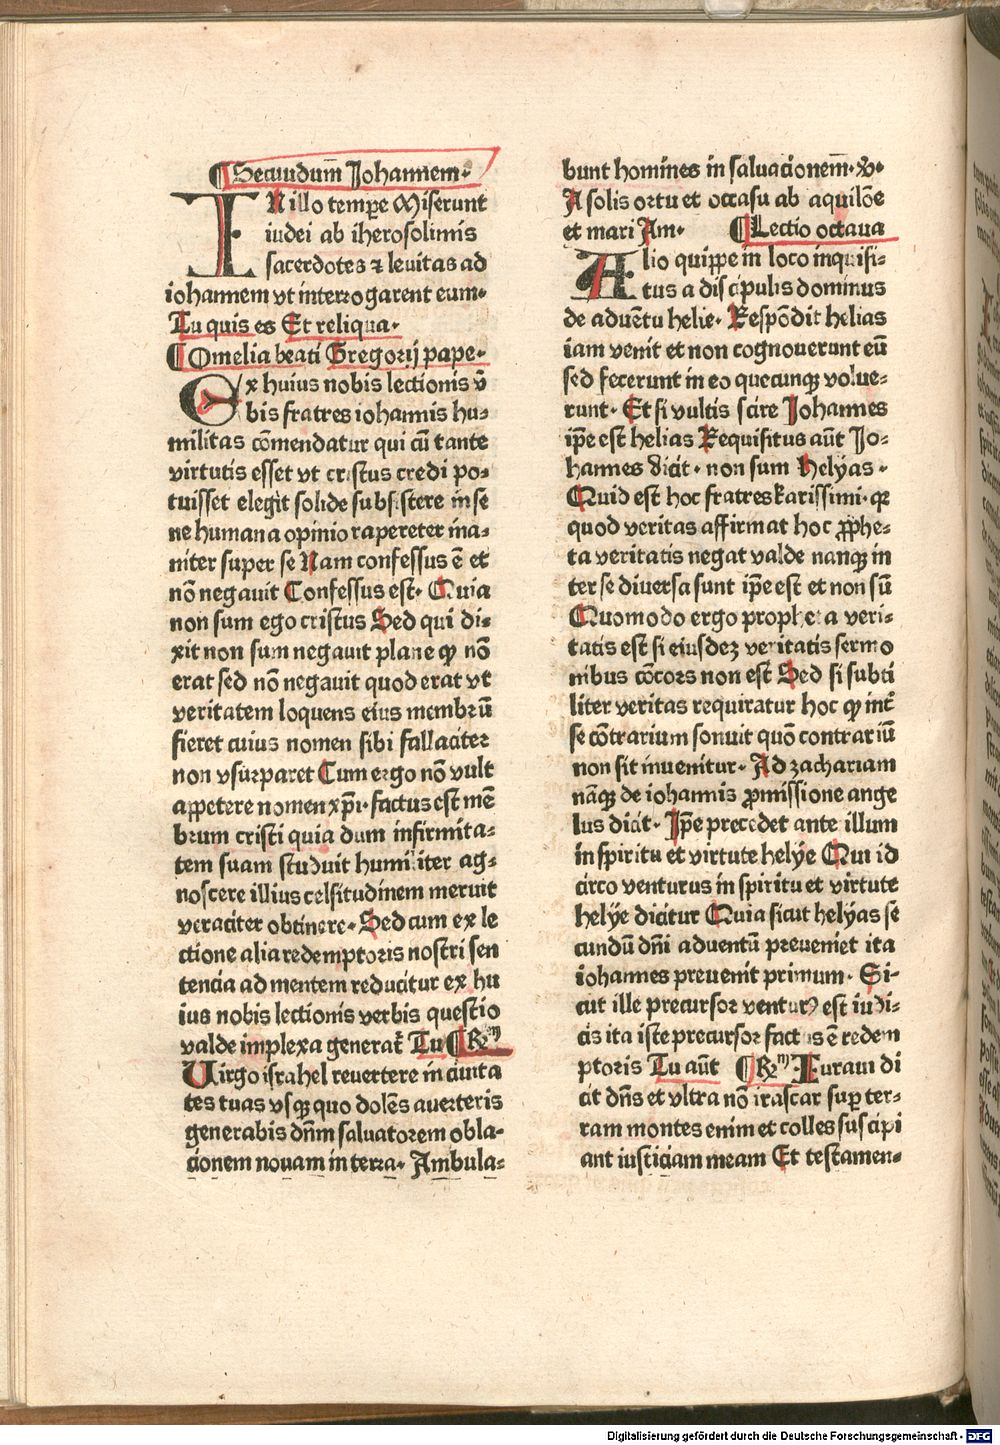 ¶Secundum̄ Johannem·
IN illo tempore Miserunt
iudei ab iherosolimis
sacerdotes ⁊ leuitas ad
iohannem vt interrogarent eum·
Tu quis es Et reliqua·
¶Omelia beati Gregorij pape·
Ex huius nobis lectionis v̄
bis fratres iohannis hu⸗
militas cōmendatur qui cū tante
virtutis esset vt cristus credi po⸗
tuisset elegit solide subsistere in se
ne humana opinio rapereter ina⸗
niter super se Nam confessus ē et
nō negauit Confessus est· Quia
non sum ego cristus Sed qui di⸗
xit non sum negauit plane ꝙ nō
erat sed nō negauit quod erat vt
veritatem loquens eius membrū
fieret cuius nomen sibi fallaciter
non vsurparet Cum ergo nō vult
appetere nomen xp̄i· factus est mē
brum cristi quia dum infirmita⸗
tem suam studuit humiliter ag⸗
noscere illius celsitudinem meruit
veraciter obtinere· Sed cum ex le
ctione alia redemptoris nostri sen
tencia ad mentem reducitur ex hu
ius nobis lectionis verbis questio
valde implexa generat̄ Tu ¶℞m
Uirgo israhel reuertere in ciuita
tes tuas vsꝙ quo dolēs auerteris
generabis dn̄m saluatorem obla⸗
cionem nouam in terra· Ambula⸗
bunt homines in saluacionem̄· ℣·
A solis ortu et occasu ab aquilōe
et mari Am· ¶Lectio octaua
Alio quippe in loco inquisi⸗
tus a discipulis dominus
de aduētu helie· Respōdit helias
iam venit et non cognouerunt eū
sed fecerunt in eo quecunꝙ volue⸗
runt· Et si vultis scire Johannes
ip̄e est helias Requisitus aūt Jo⸗
hannes dicit· non sum Helyas·
Quid est hoc fratres karissimi· ꝙ
quod veritas affirmat hoc ꝓphe⸗
ta veritatis negat valde nanꝙ in
ter se diuersa sunt ip̄e est et non sū
Quomodo ergo propheta veri⸗
tatis est si eiusdez veritatis sermo
nibus cōcors non est Sed si subti
liter veritas requiratur hoc ꝙ int̄
se cōtrarium sonuit quō contrariū
non sit inuenitur· Ad zachariam
nāꝙ de iohannis ꝓmissione ange
lus dicit· Ip̄e precedet ante illum
in spiritu et virtute helye Qui id
circo venturus in spiritu et virtute
helye dicitur Quia sicut helyas se
cundū dn̄i aduentū preueniet ita
iohannes preuenit primum· Si⸗
cut ille precursor venturꝰ est iudi⸗
cis ita iste precursor factus ē redem
ptoris Tu aūt ¶℞m Iuraui di
cit dn̄s et vltra nō irascar sup̄ ter⸗
ram montes enim et colles suscipi
ant iusticiam meam Et testamen⸗
Digitalisierung gefördert durch die Deutsche Forschungsgemeinschaft - DFG